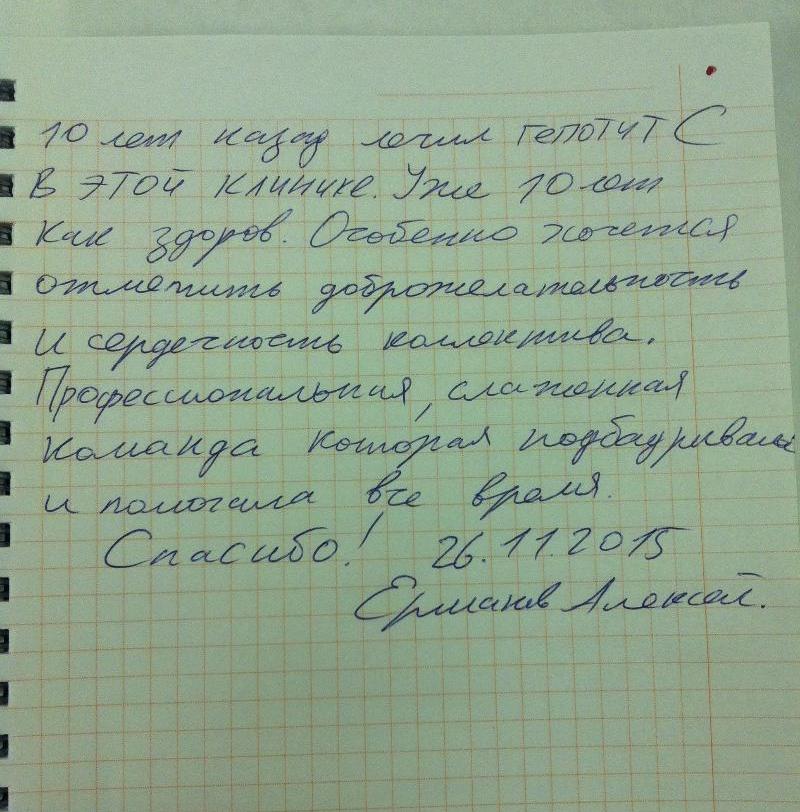 10 лет назад лечил гепотит С
в этой клинике. Уже 10 лет
как здоров. Особенно хочется
отметить доброжелательность
и сердечность коллектива.
Профессиональная, слаженная
команда которая подбадривала
и помогала все время.
Спасибо! 26.11.2015
Ермаков Алексей.